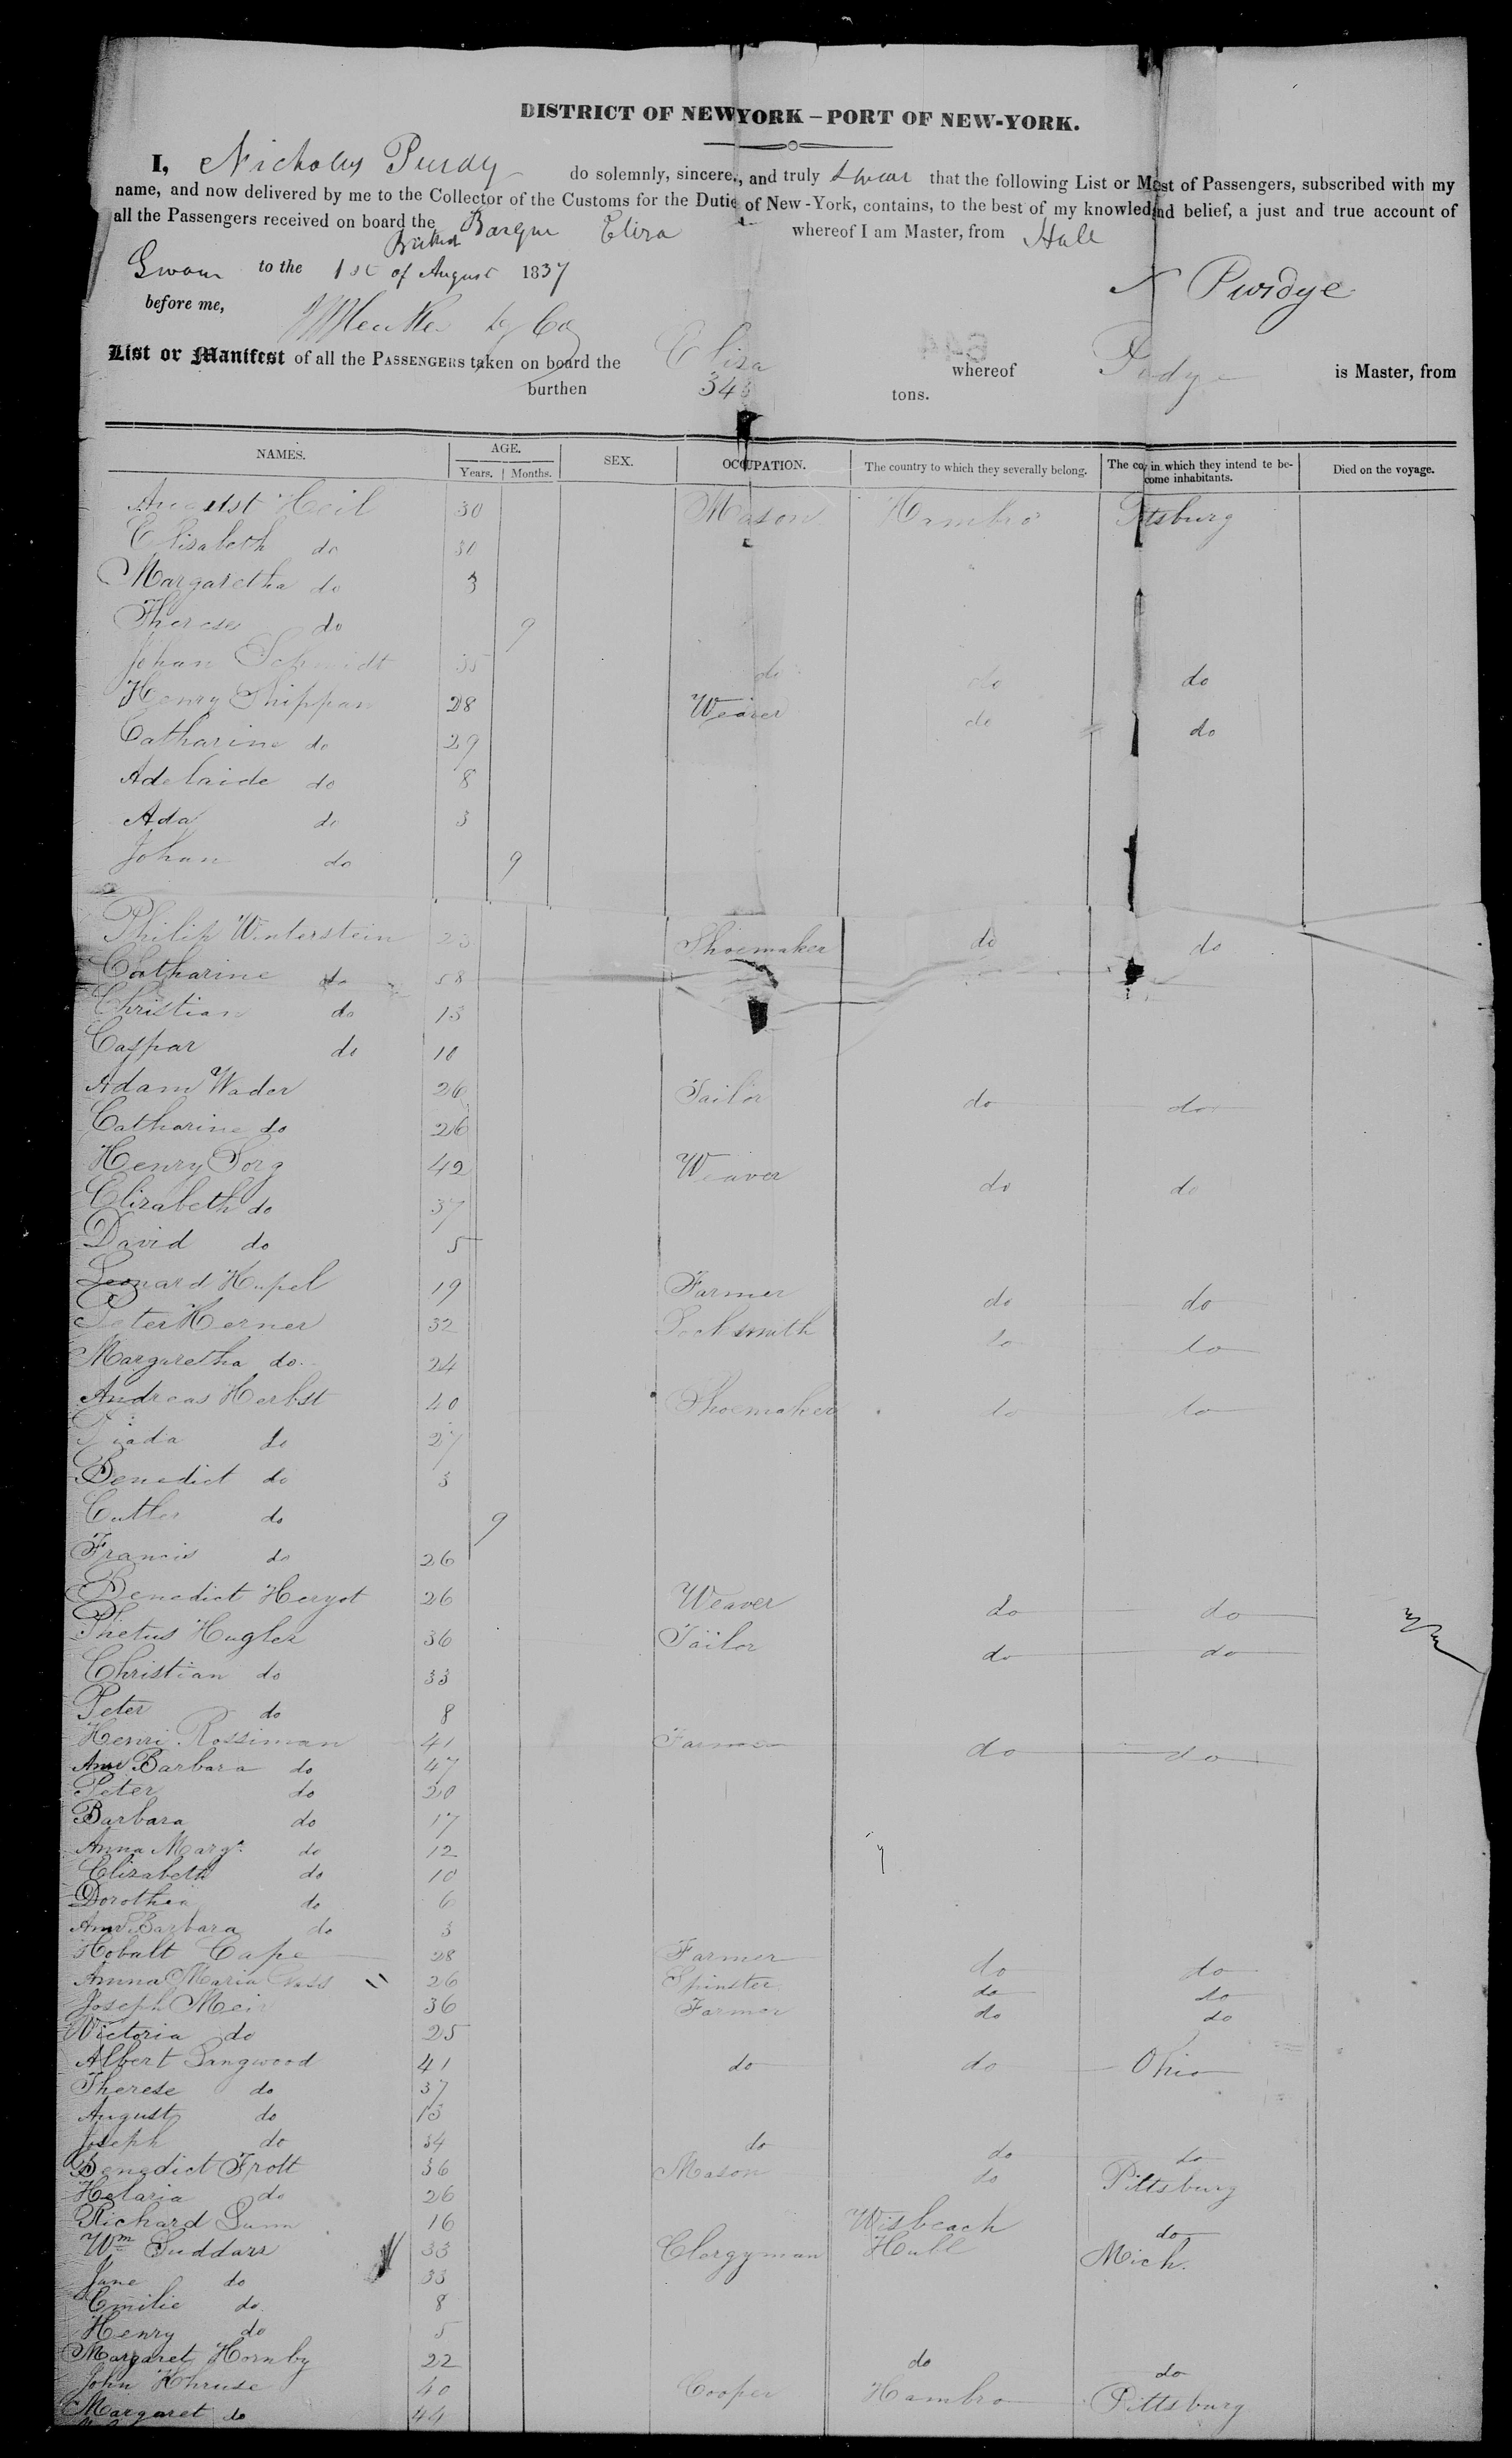 DISTRICT OF NEW YORK – PORT OF NEW-YORK.
I, Nicholas Purdy do solemnly, sincere, and truly swear that the following List or M st of Passengers, subscribed with my
name, and now delivered by me to the Collector of the Customs for the Dutie of New-York, contains, to the best of my knowled nd belief, a just and true account of
all the Passengers received on board the British Barque Eliza whereof I am Master, from Hull
Sworn to the 1st of August 1837
before me, N Purdye
List or Manifest of all the PASSENGERS taken on board the Eliza whereof is Master, from
burthen 343 tons.
NAMES. AGE. SEX. OCCUPATION. The country to which they severally belong. The co in which they intend te become inhabitants. Died on the voyage.
Years. Months.
August Heil 30 Mason Hambro Pitsburg
Elisabeth do 30
Margaretha do 3
Therese do 9
Johan Schmidt 35 do do do
Henry Shippan 28 Weaver do do
Catharine do 29
Adelaide do 8
Ada do 3
Johan do 9
Philip Winterstein 23 Shoemaker do do
Catharine do 58
Christian do 13
Caspar do 10
Adam Wader 26 Tailor do do
Catharine do 26
Henry Sorg 42 Weaver do do
Elizabeth do 37
David do 5
Leonard Hupel 19 Farmer do do
Peter Herner 32 Locksmith do do
Margaretha do 24
Andreas Herbst 40 Shoemaker do do
do 27
Benedict do 3
do 9
Francis do 26
Benedict Hergot 26 Weaver do do
Hugler 36 Tailor do do
Christian do 33
Peter do 8
Henri Rossiman 41 Farmer do do
Ann Barbara do 47
Peter do 20
Barbara do 17
Anna Marga. do 12
Elizabeth do 10
Dorothea do 6
Ann Barbara do 3
Hobalt Cape 28 Farmer do do
Anna Maria 26 Spinster do do
Joseph Meir 36 Farmer do do
Victoria do 25
Albert Langwood 41 do do Ohio
Therese do 37
August do 13
Joseph do 34 do do do
Benedict Frott 36 Mason do Pittsburg
Helaria do 26
Richard Lunn 16 Wisbeach do
Wm Suddars 33 Clergyman Hull Mich.
Jane do 33
Emilie do 8
Henry do 5
Margaret Hornby 22 do do
John Khruse 40 Cooper Hambro Pittsburg
Margaret do 44